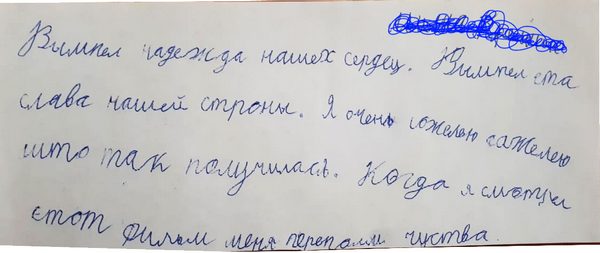 Вимпел надежда нашех сердец. Вимпел ета
слава нашей строны. Я очень сожелею сажелею
што так получилась. Когда я смотрю
етот фильм меня переполли чуства.